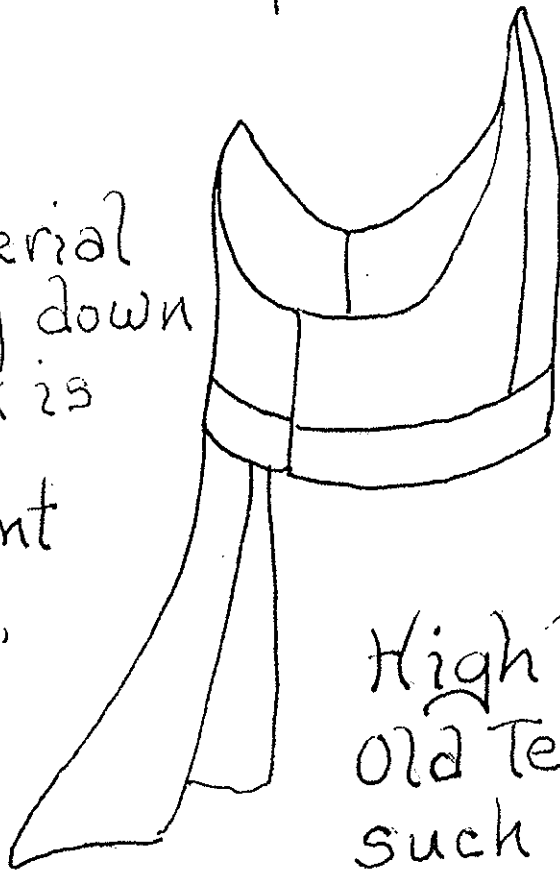 erial
down
is
nt
High
Old Te
such